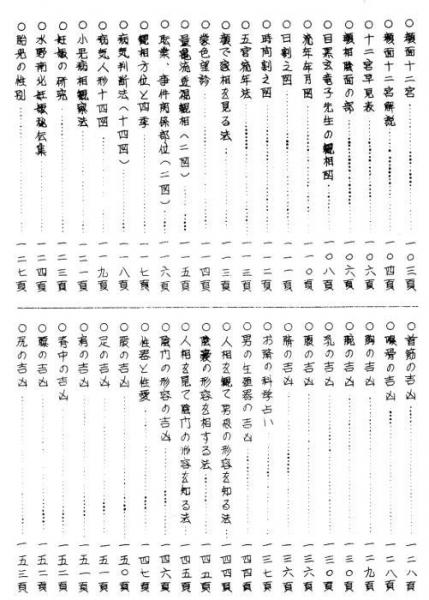 ○顔面十二宮……一〇三頁
○顔面十二宮解説……一〇四頁
○十二宮早見表……一〇六頁
○顔相陰面の部……一〇六頁
○目黒玄竜子先生の観相図……一〇八頁
○流年年月図……一一〇頁
○日割之図……一一一頁
○時間割之図……一一一頁
○五官流年法……一一二頁
○顔で窓相を見る法……一一三頁
○気色望診……一一四頁
○霊亀流五運観相（二図）……一一五頁
○恋愛、事件関係部位（二図）……一一六頁
○観相方位と四季……一一七頁
○病気判断法（十四図）……一一八頁
○病気人形十四図……一一九頁
○小児病相観察法……一二一頁
○妊娠の研究……一二三頁
○水野南北妊娠秘伝集……一二四頁
○胎児の性別……一二七頁
○首筋の吉凶……一二八頁
○喉骨の吉凶……一二八頁
○胸の吉凶……一二九頁
○腕の吉凶……一三〇頁
○乳の吉凶……一三〇頁
○腹の吉凶……一三六頁
○臍の吉凶……一三六頁
○お臍の科学占い……一三七頁
○男の生殖器の吉凶……一四四頁
○人相を観て男根の形容を知る法……一四四頁
○陰嚢の形容を相する法……一四五頁
○人相を見て陰門の形容を知る法……一四五頁
○陰門の形容の吉凶……一四六頁
○性器と性愛……一四七頁
○股の吉凶……一五〇頁
○足の吉凶……一五一頁
○肩の吉凶……一五一頁
○背中の吉凶……一五二頁
○腰の吉凶……一五二頁
○尻の吉凶……一五三頁